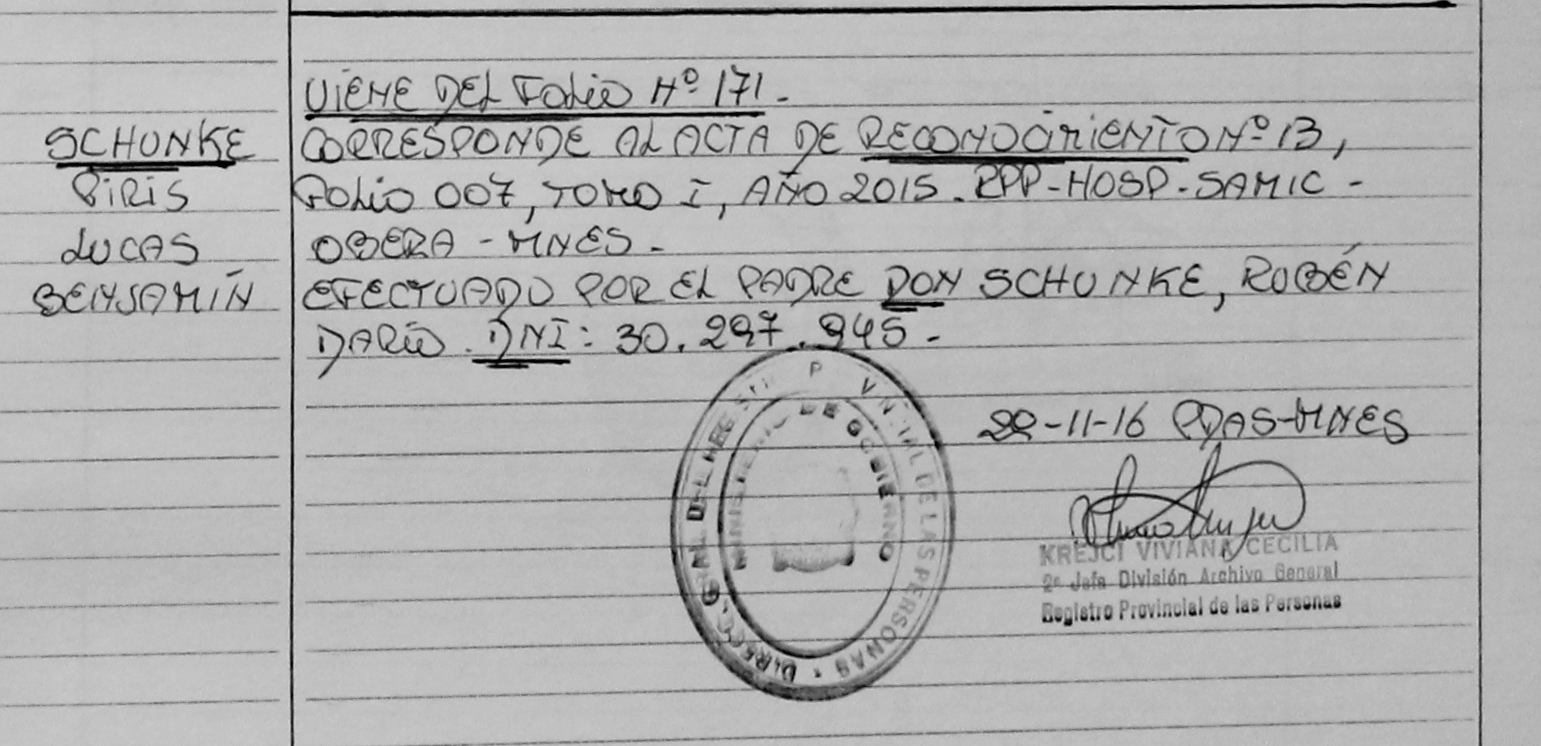 VIENE DEL FOLIO Nº 171.-
SCHUNKE
PIRIS
LUCAS
BENJAMÍN
CORRESPONDE AL ACTA DE RECONOCIMIENTO Nº 13,
FOLIO 007, TOMO I, AÑO 2015. RPP-HOSP-SAMIC-
OBERA-MNES.-
EFECTUADO POR EL PADRE DON SCHUNKE, RUBÉN
DARÍO. DNI: 30.297.945.-
DIRECC. GRAL DEL REG. P VNCIAL DE LAS PERSONAS
MINISTERIO DE GOBIERNO
22-11-16 PDAS-MNES
KREJCI VIVIANA CECILIA
2º Jefa División Archivo General
Registro Provincial de las Personas